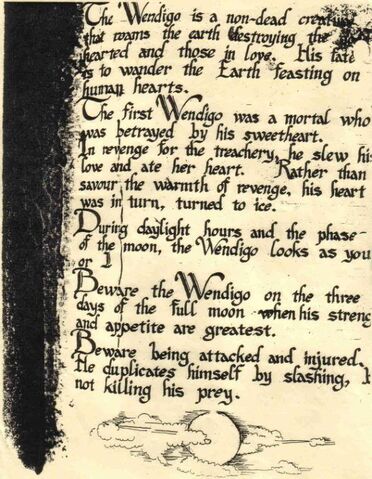 The Wendigo is a non-dead creatu
that roams the earth destroying the
hearted and those in love. His fate
is to wander the Earth feasting on
human hearts.
The first Wendigo was a mortal who
was betrayed by his sweetheart.
In revenge for the treachery, he slew his
love and ate her heart. Rather than
savour the warmth of revenge, his heart
was in turn, turned to ice.
During daylight hours and the phase-
of the moon, the Wendigo looks as you
or I
Beware the Wendigo on the three
days of the full moon when his streng
and appetite are greatest.
Beware being attacked and injured.
He duplicates himself by slashing,
not killing his prey.